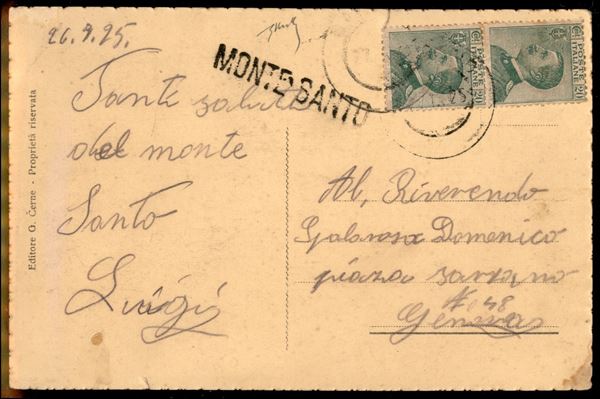 26.9.25.
MONTE SANTO
POSTE ITALIANE
20
POSTE ITALIANE
20
Tante saluti
del monte
Santo
Luigi
Al, Riverendo
Galarosa Domenico
piaza sarzano
N. 48
Genova
Editore G. Černe - Proprietà riservata